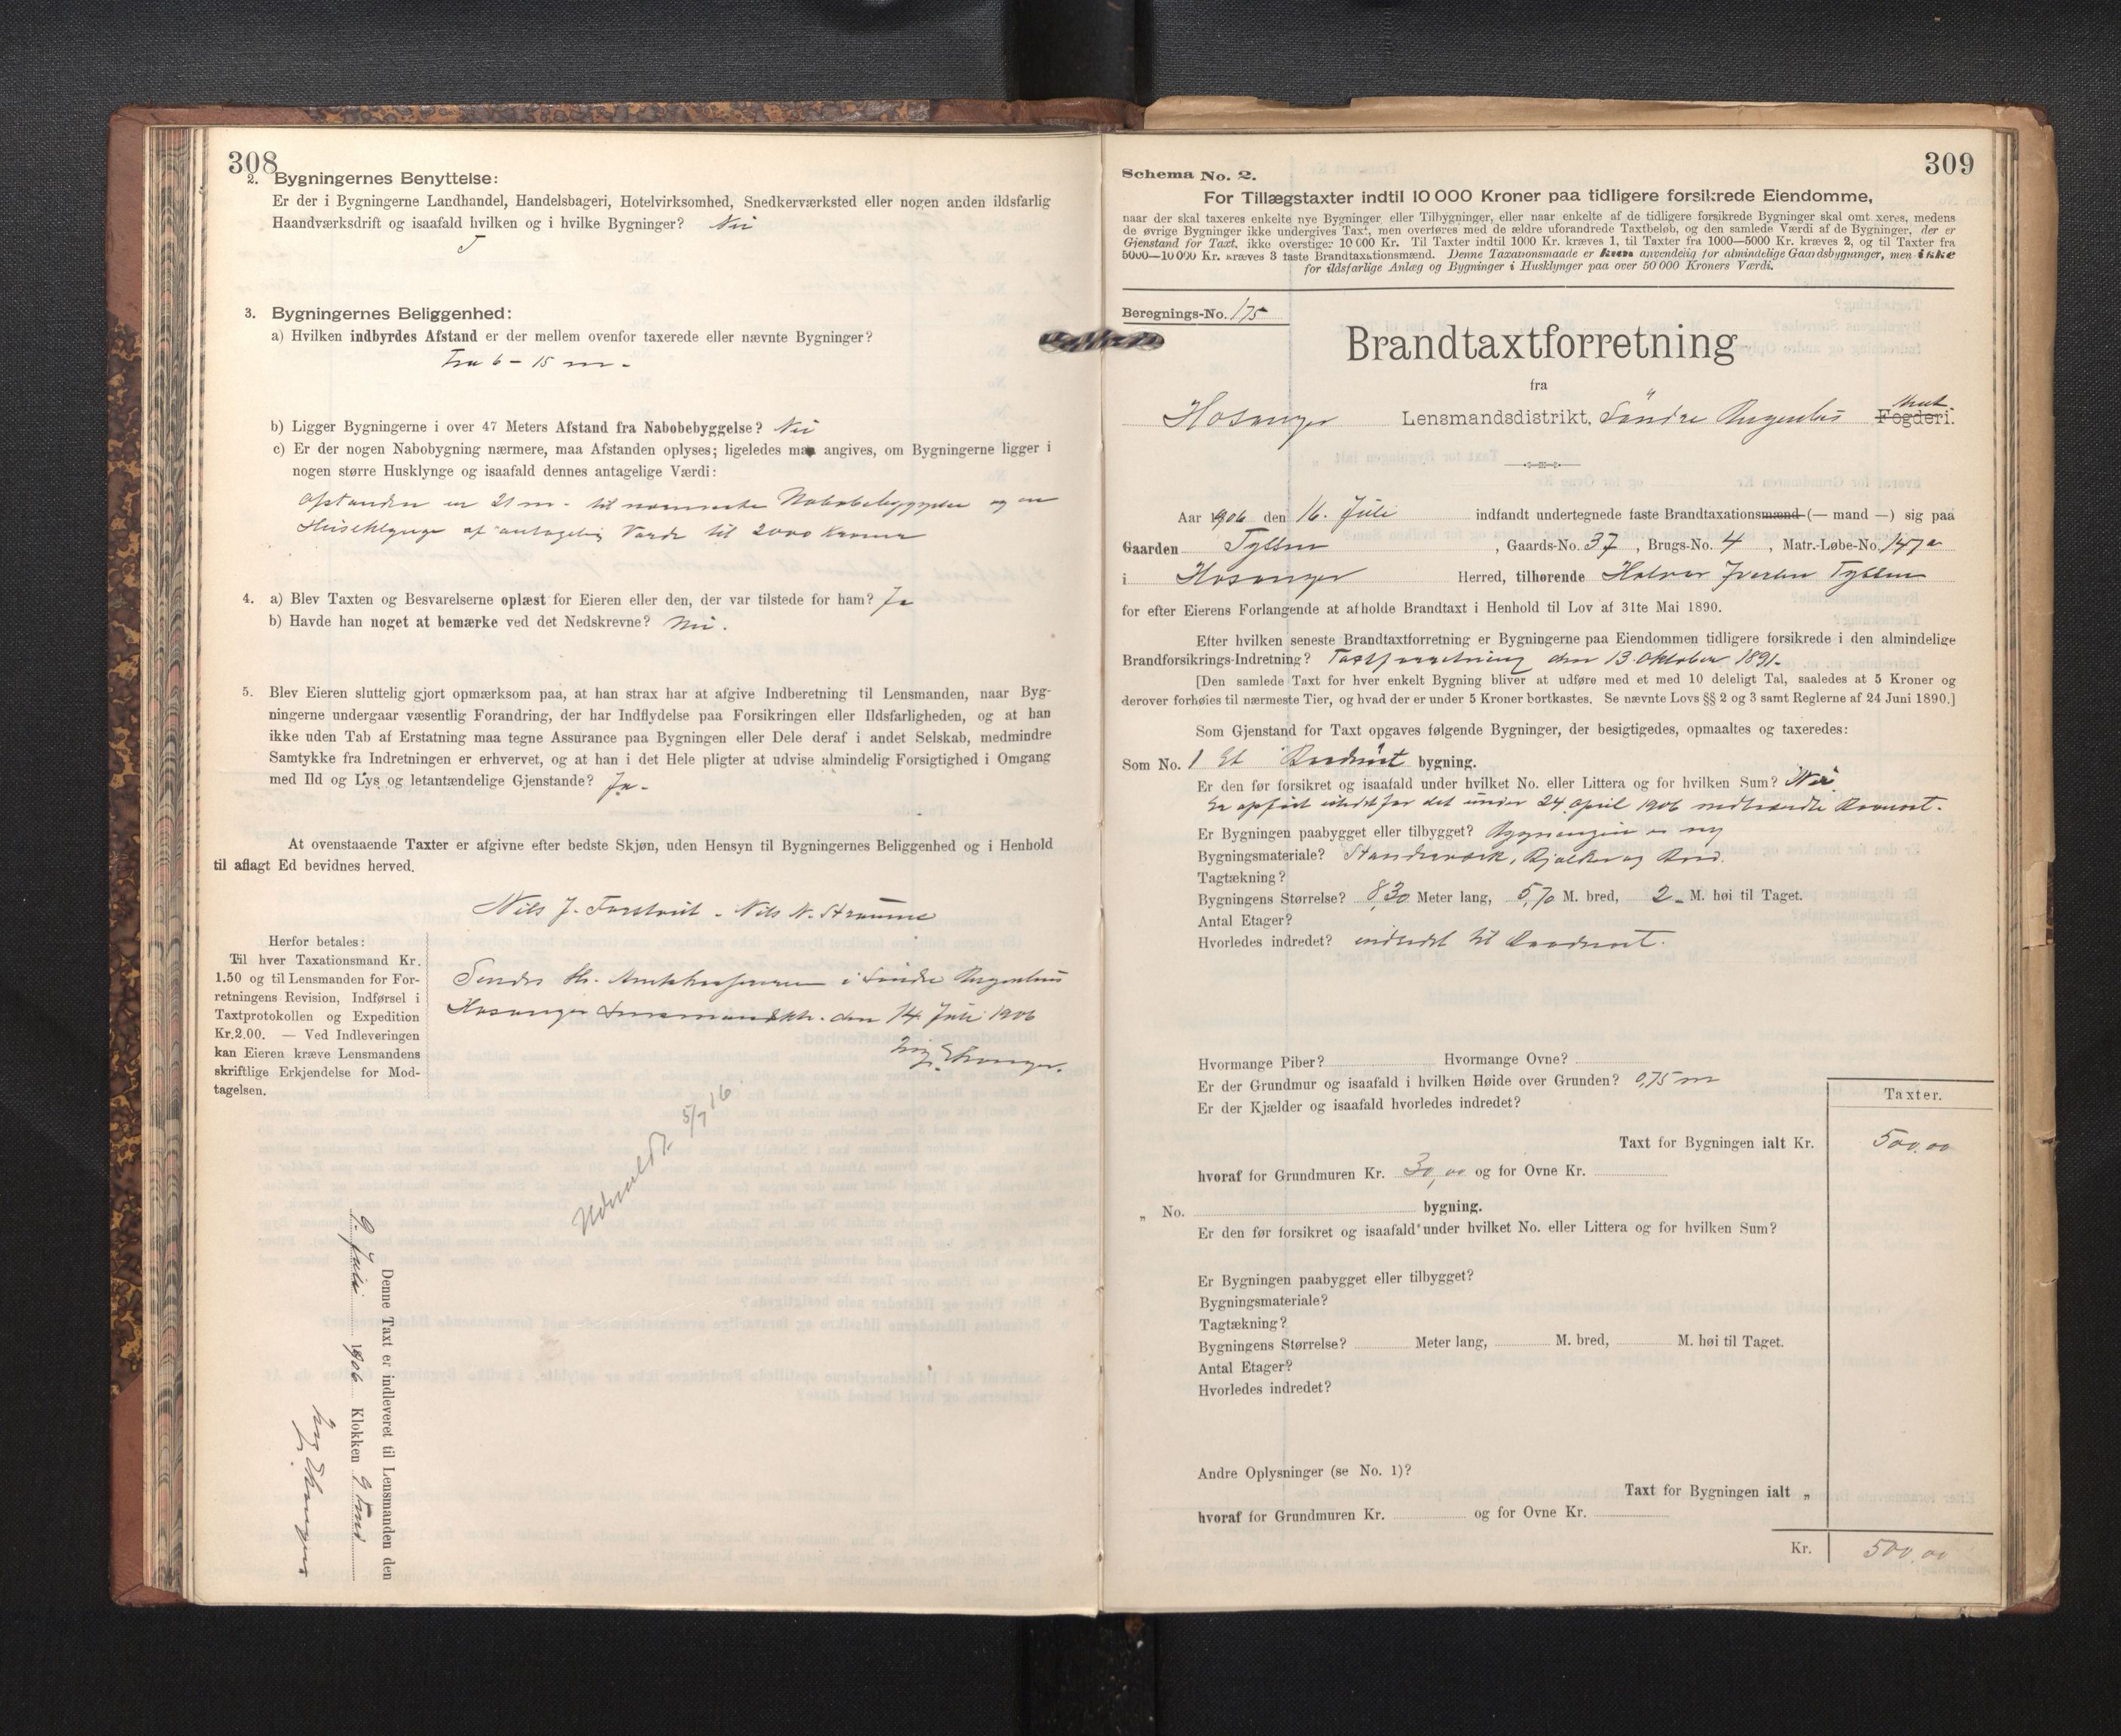 308
2. Bygningernes Benyttelse:
Er der i Bygningerne Landhandel, Handelsbageri, Hotelvirksomhed, Snedkerværksted eller nogen anden ildsfarlig
Haandværksdrift og isaafald hvilken og i hvilke Bygninger? Nei
3. Bygningernes Beliggenhed:
a) Hvilken indbyrdes Afstand er der mellem ovenfor taxerede eller nævnte Bygninger?
Fra 6 - 15 m -
b) Ligger Bygningerne i over 47 Meters Afstand fra Nabobebyggelse? Nei
c) Er der nogen Nabobygning nærmere, maa Afstanden oplyses; ligeledes maa angives, om Bygningerne ligger i
nogen større Husklynge og isaafald dennes antagelige Værdi:
Afstanden er 21 m - til nærmeste Nabobebyggelse og en
Huseklynge af antagelig Værdi til 2000 Kroner
4. a) Blev Taxten og Besvarelserne oplæst for Eieren eller den, der var tilstede for ham? Ja
b) Havde han noget at bemærke ved det Nedskrevne? Nei.
5. Blev Eieren sluttelig gjort opmærksom paa, at han strax har at afgive Indberetning til Lensmanden, naar Byg-
ningerne undergaar væsentlig Forandring, der har Indflydelse paa Forsikringen eller Ildsfarligheden, og at han
ikke uden Tab af Erstatning maa tegne Assurance paa Bygningen eller Dele deraf i andet Selskab, medmindre
Samtykke fra Indretningen er erhvervet, og at han i det Hele pligter at udvise almindelig Forsigtighed i Omgang
med Ild og Lys og letantændelige Gjenstande? Ja -
At ovenstaaende Taxter er afgivne efter bedste Skjøn, uden Hensyn til Bygningernes Beliggenhed og i Henhold
til aflagt Ed bevidnes herved.
Nils J. - Nils N. Strømme
Herfor betales:
Til hver Taxationsmand Kr.
1.50 og til Lensmanden for For-
retningens Revision, Indførsel i
Taxtprotokollen og Expedition
Kr.2.00. — Ved Indleveringen
kan Eieren kræve Lensmandens
skriftlige Erkjendelse for Mod-
tagelsen.
Sendes Hr. Amtskassereren i Søndre Bergenhus
Hosanger Lensmandsktr. den 14 Juli 1906
Udmeldt 5/7 16
Denne Taxt er indleveret til Lensmanden den
9. Juli 1906 Klokken 9 Fmd
309
Schema No. 2.
For Tillægstaxter indtil 10 000 Kroner paa tidligere forsikrede Eiendomme,
naar der skal taxeres enkelte nye Bygninger eller Tilbygninger, eller naar enkelte af de tidligere forsikrede Bygninger skal omtaxeres, medens
de øvrige Bygninger ikke undergives Taxt, men overføres med de ældre uforandrede Taxtbeløb, og den samlede Værdi af de Bygninger, der er
Gjenstand for Taxt, ikke overstiger 10 000 Kr. Til Taxter indtil 1000 Kr. kræves 1, til Taxter fra 1000—5000 Kr. kræves 2, og til Taxter fra
5000—10 000 Kr. kræves 3 faste Brandtaxationsmænd. Denne Taxationsmaade er kun anvendelig for almindelige Gaardsbygninger, men ikke
for ildsfarlige Anlæg og Bygninger i Husklynger paa over 50 000 Kroners Værdi.
Beregnings-No. 175
Brandtaxtforretning
fra
Hosanger Lensmandsdistrikt, Søndre Bergenhus Amt Fogderi.
Aar 1906 den 16. Juli indfandt undertegnede faste Brandtaxationsmænd (— mand —) sig paa
Gaarden Tyssen, Gaards-No. 37, Brugs-No. 4, Matr.-Løbe-No. 147a
i Hosanger Herred, tilhørende Halvor Iversen Tyssen
for efter Eierens Forlangende at afholde Brandtaxt i Henhold til Lov af 31te Mai 1890.
Efter hvilken seneste Brandtaxtforretning er Bygningerne paa Eiendommen tidligere forsikrede i den almindelige
Brandforsikrings-Indretning? Taxtforretning den 13 Oktober 1891.
[Den samlede Taxt for hver enkelt Bygning bliver at udføre med et med 10 deleligt Tal, saaledes at 5 Kroner og
derover forhøies til nærmeste Tier, og hvad der er under 5 Kroner bortkastes. Se nævnte Lovs §§ 2 og 3 samt Reglerne af 24 Juni 1890.]
Som Gjenstand for Taxt opgaves følgende Bygninger, der besigtigedes, opmaaltes og taxeredes:
Som No. 1 Et bygning.
Er den før forsikret og isaafald under hvilket No. eller Littera og for hvilken Sum? Nei
Er opført istedetfor det under 24 April 1906 nedbrændte
Er Bygningen paabygget eller tilbygget? Bygningen er ny
Bygningsmateriale? Standværk, Bjælker og Bord.
Tagtækning?
Bygningens Størrelse? 8,30 Meter lang, 5,70 M. bred, 2 - M. høi til Taget.
Antal Etager?
Hvorledes indredet? indredet til
Hvormange Piber? Hvormange Ovne?
Er der Grundmur og isaafald i hvilken Høide over Grunden? 0,75 m
Er der Kjælder og isaafald hvorledes indredet?
Taxter.
Taxt for Bygningen ialt Kr. 500,00
hvoraf for Grundmuren Kr. 30,00 og for Ovne Kr.
„ No. bygning.
Er den før forsikret og isaafald under hvilket No. eller Littera og for hvilken Sum?
Er Bygningen paabygget eller tilbygget?
Bygningsmateriale?
Tagtækning?
Bygningens Størrelse? Meter lang, M. bred, M. høi til Taget.
Antal Etager?
Hvorledes indredet?
Andre Oplysninger (se No. 1)?
Taxt for Bygningen ialt „
hvoraf for Grundmuren Kr. og for Ovne Kr.
Kr. 500,00